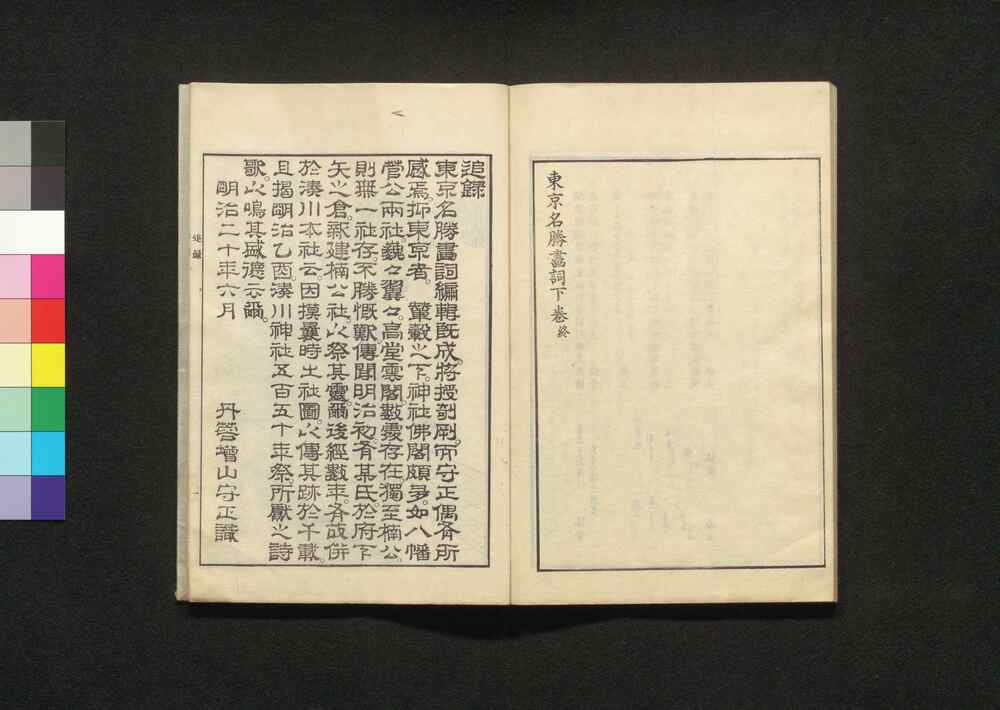 東京名勝畫詞下卷終
追録
東京名勝畫詞編輯旣成。將授剞劂。而守正偶有所
感焉。抑東京者。輦轂之下。神社佛閣頗多。如八幡
菅公兩社。巍々翼々。高堂雲閣。數處存在。獨至楠公。
則無一社存。不勝慨歎。傳聞明治初。有某氏。於府下
矢之倉。新建楠公社。以祭其靈爾後經數年。有故併
於湊川本社云。因摸曩時之社圖。以傳其跡於千載。
且揭明治乙酉。湊川神社五百五十年祭。所獻之詩
歌。以鳴其盛迹云爾。
明治二十年六月
丹誉增山守正識
追錄